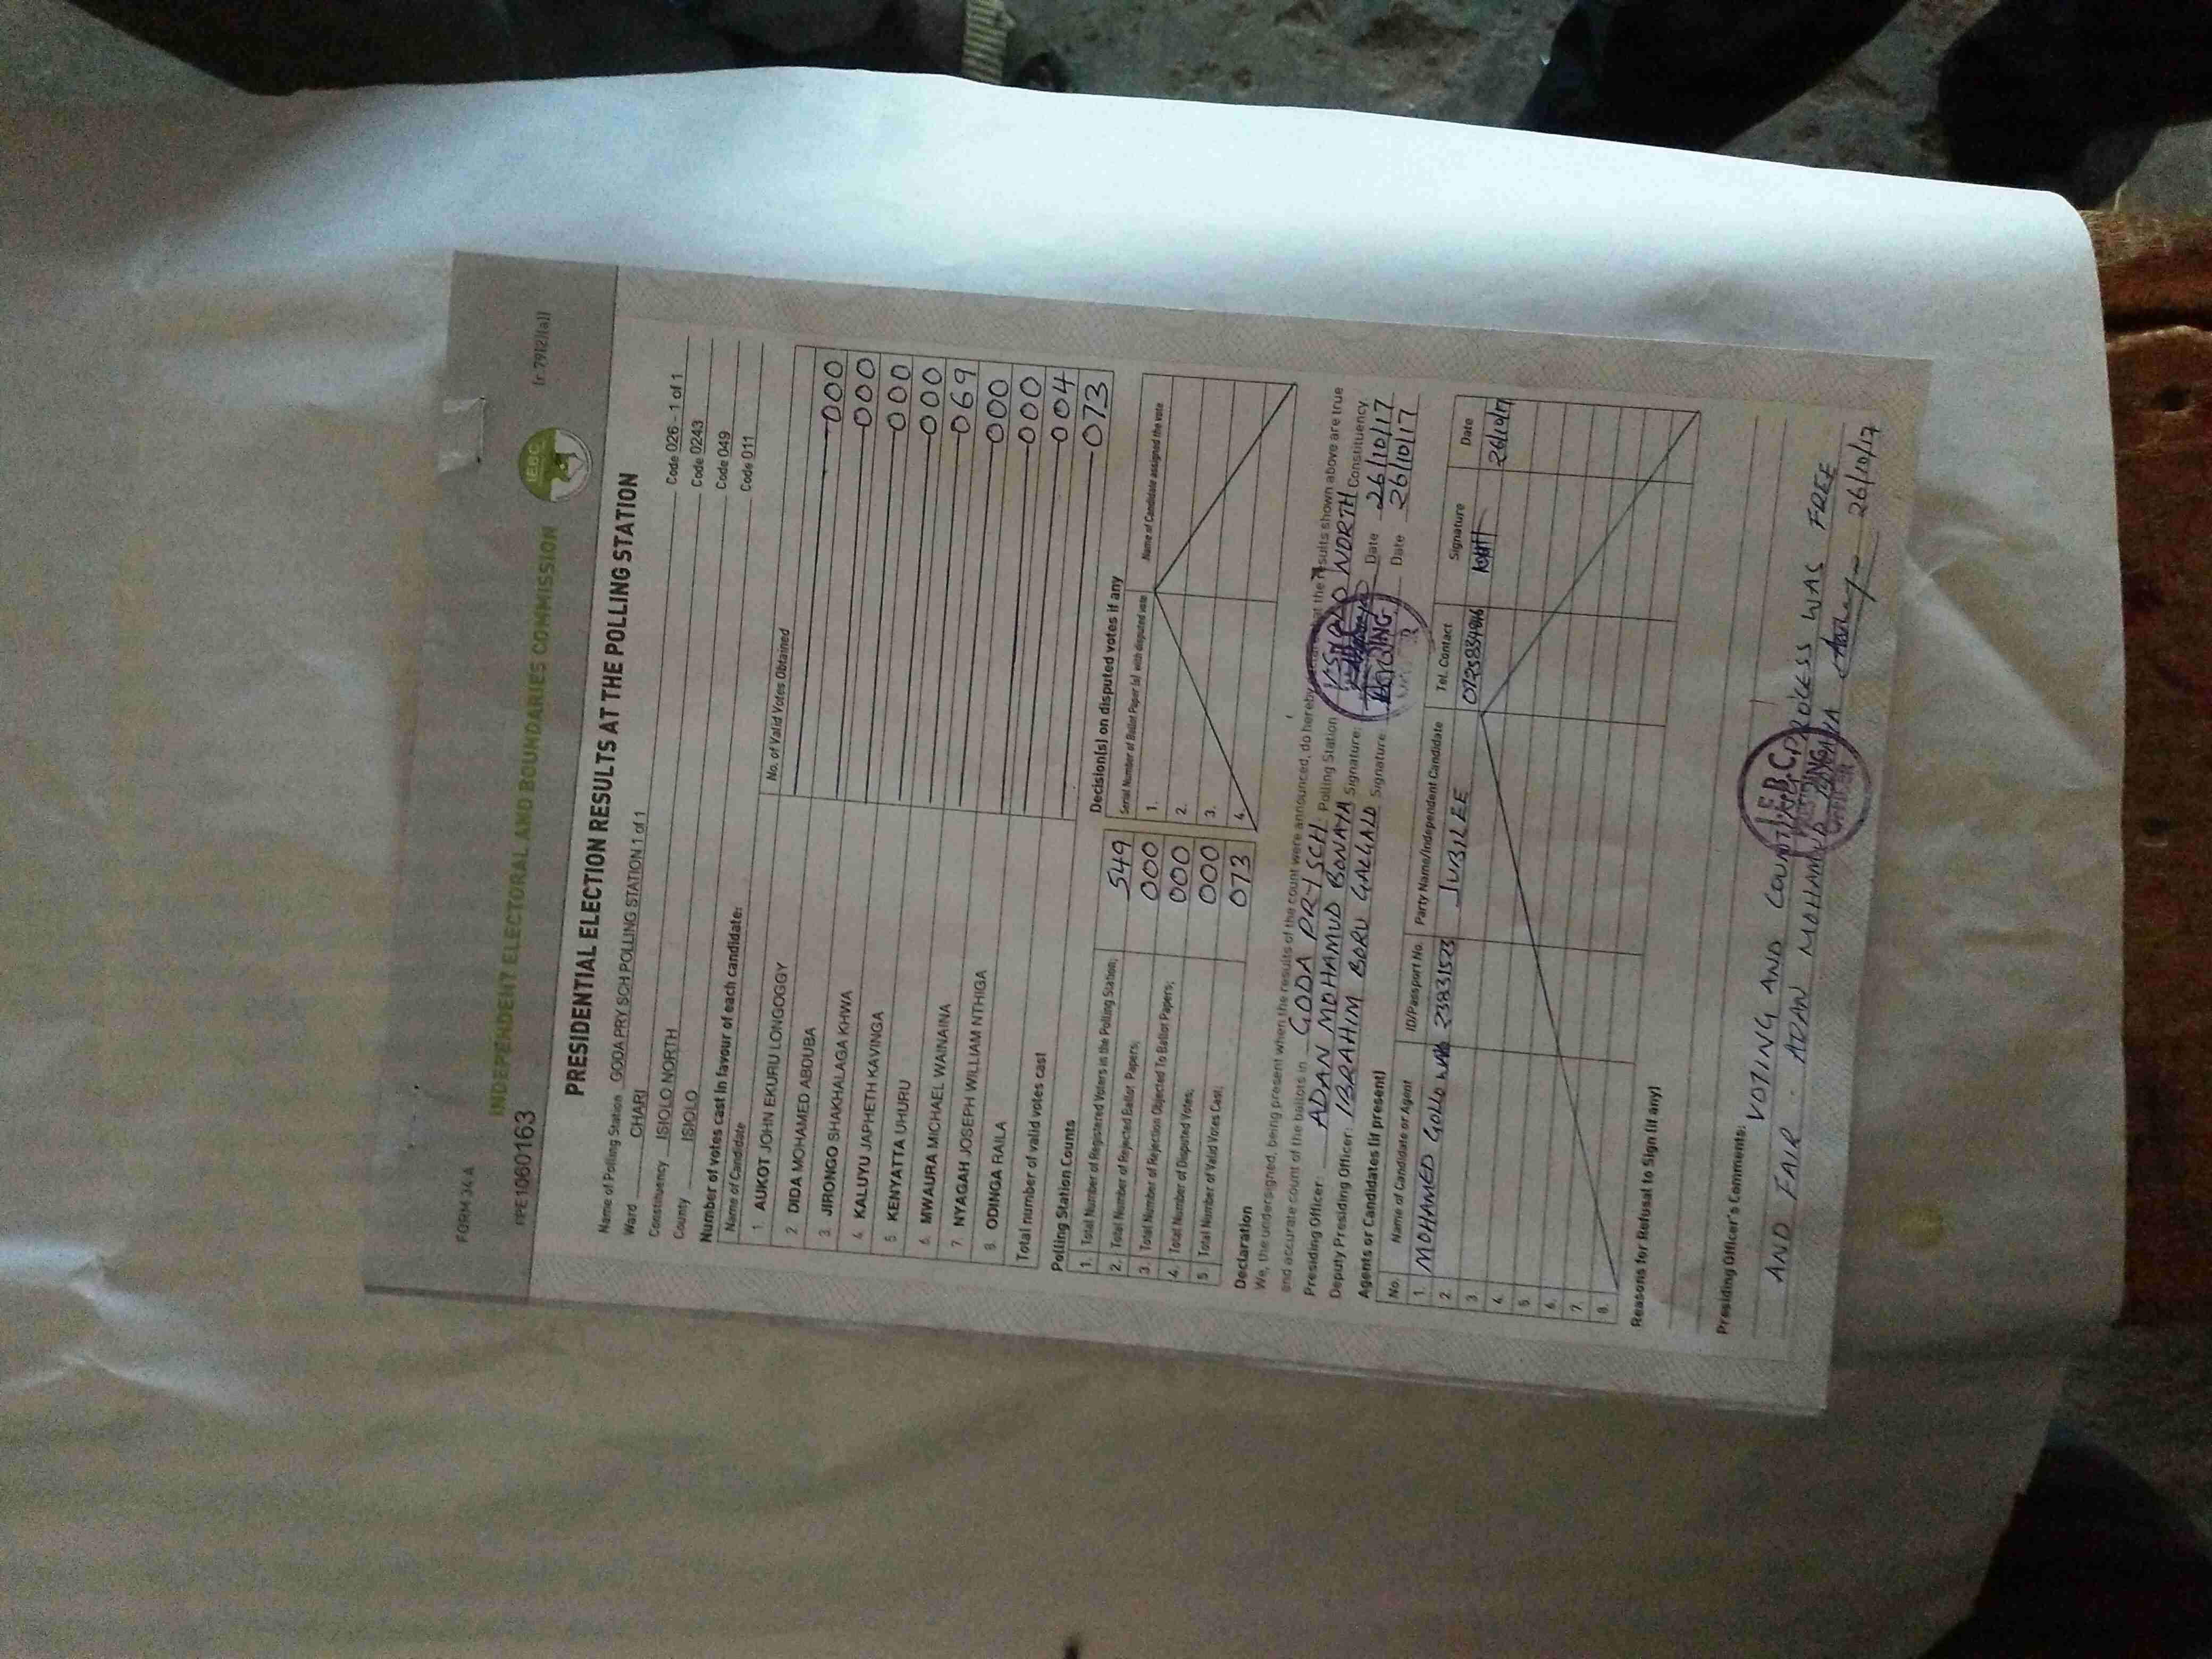 FORM 34 A
(r. 79(2)(a))
PE1060163
IEBC
INDEPENDENT ELECTORAL AND BOUNDARIES COMMISSION
PRESIDENTIAL ELECTION RESULTS AT THE POLLING STATION
Name of Polling Station GODA PRY SCH POLLING STATION 1 of 1 Code 026 - 1 of 1
Ward CHARI Code 0243
Constituency ISIOLO NORTH Code 049
County ISIOLO Code 011
Number of votes cast in favour of each candidate:
Name of Candidate No. of Valid Votes Obtained
1. AUKOT JOHN EKURU LONGOGGY 000
2. DIDA MOHAMED ABDUBA 000
3. JIRONGO SHAKHALAGA KHWA 000
4. KALUYU JAPHETH KAVINGA 000
5. KENYATTA UHURU 069
6. MWAURA MICHAEL WAINAINA 000
7. NYAGAH JOSEPH WILLIAM NTHIGA 000
8. ODINGA RAILA 004
Total number of valid votes cast 073
Polling Station Counts
1. Total Number of Registered Voters in the Polling Station; 549
2. Total Number of Rejected Ballot Papers; 000
3. Total Number of Rejection Objected To Ballot Papers; 000
4. Total Number of Disputed Votes; 000
5. Total Number of Valid Votes Cast; 073
Decision(s) on disputed votes if any
Serial Number of Ballot Paper (s) with disputed vote Name of Candidate assigned the vote
1.
2.
3.
4.
Declaration
We, the undersigned, being present when the results of the count were announced, do hereby that the results shown above are true
and accurate count of the ballots in GODA PRY SCH Polling Station NORTH Constituency.
Presiding Officer: ADAN MOHAMUD BONAYA Signature: Date 26/10/17
Deputy Presiding Officer: IBRAHIM BORU GALGALO Signature Date 26/10/17
Agents or Candidates (if present)
No. Name of Candidate or Agent ID/Passport No. Party Name/Independent Candidate Tel. Contact Signature Date
1. MOHAMED GOLLO 23831523 JUBILEE 26/10/17
2.
3.
4.
5.
6.
7.
8.
Reasons for Refusal to Sign (if any)
Presiding Officer's Comments:
VOTING AND COUNTING PROCESS WAS FREE
AND FAIR. ADAN MOHAMUD BONAYA 26/10/17
I.E.B.C